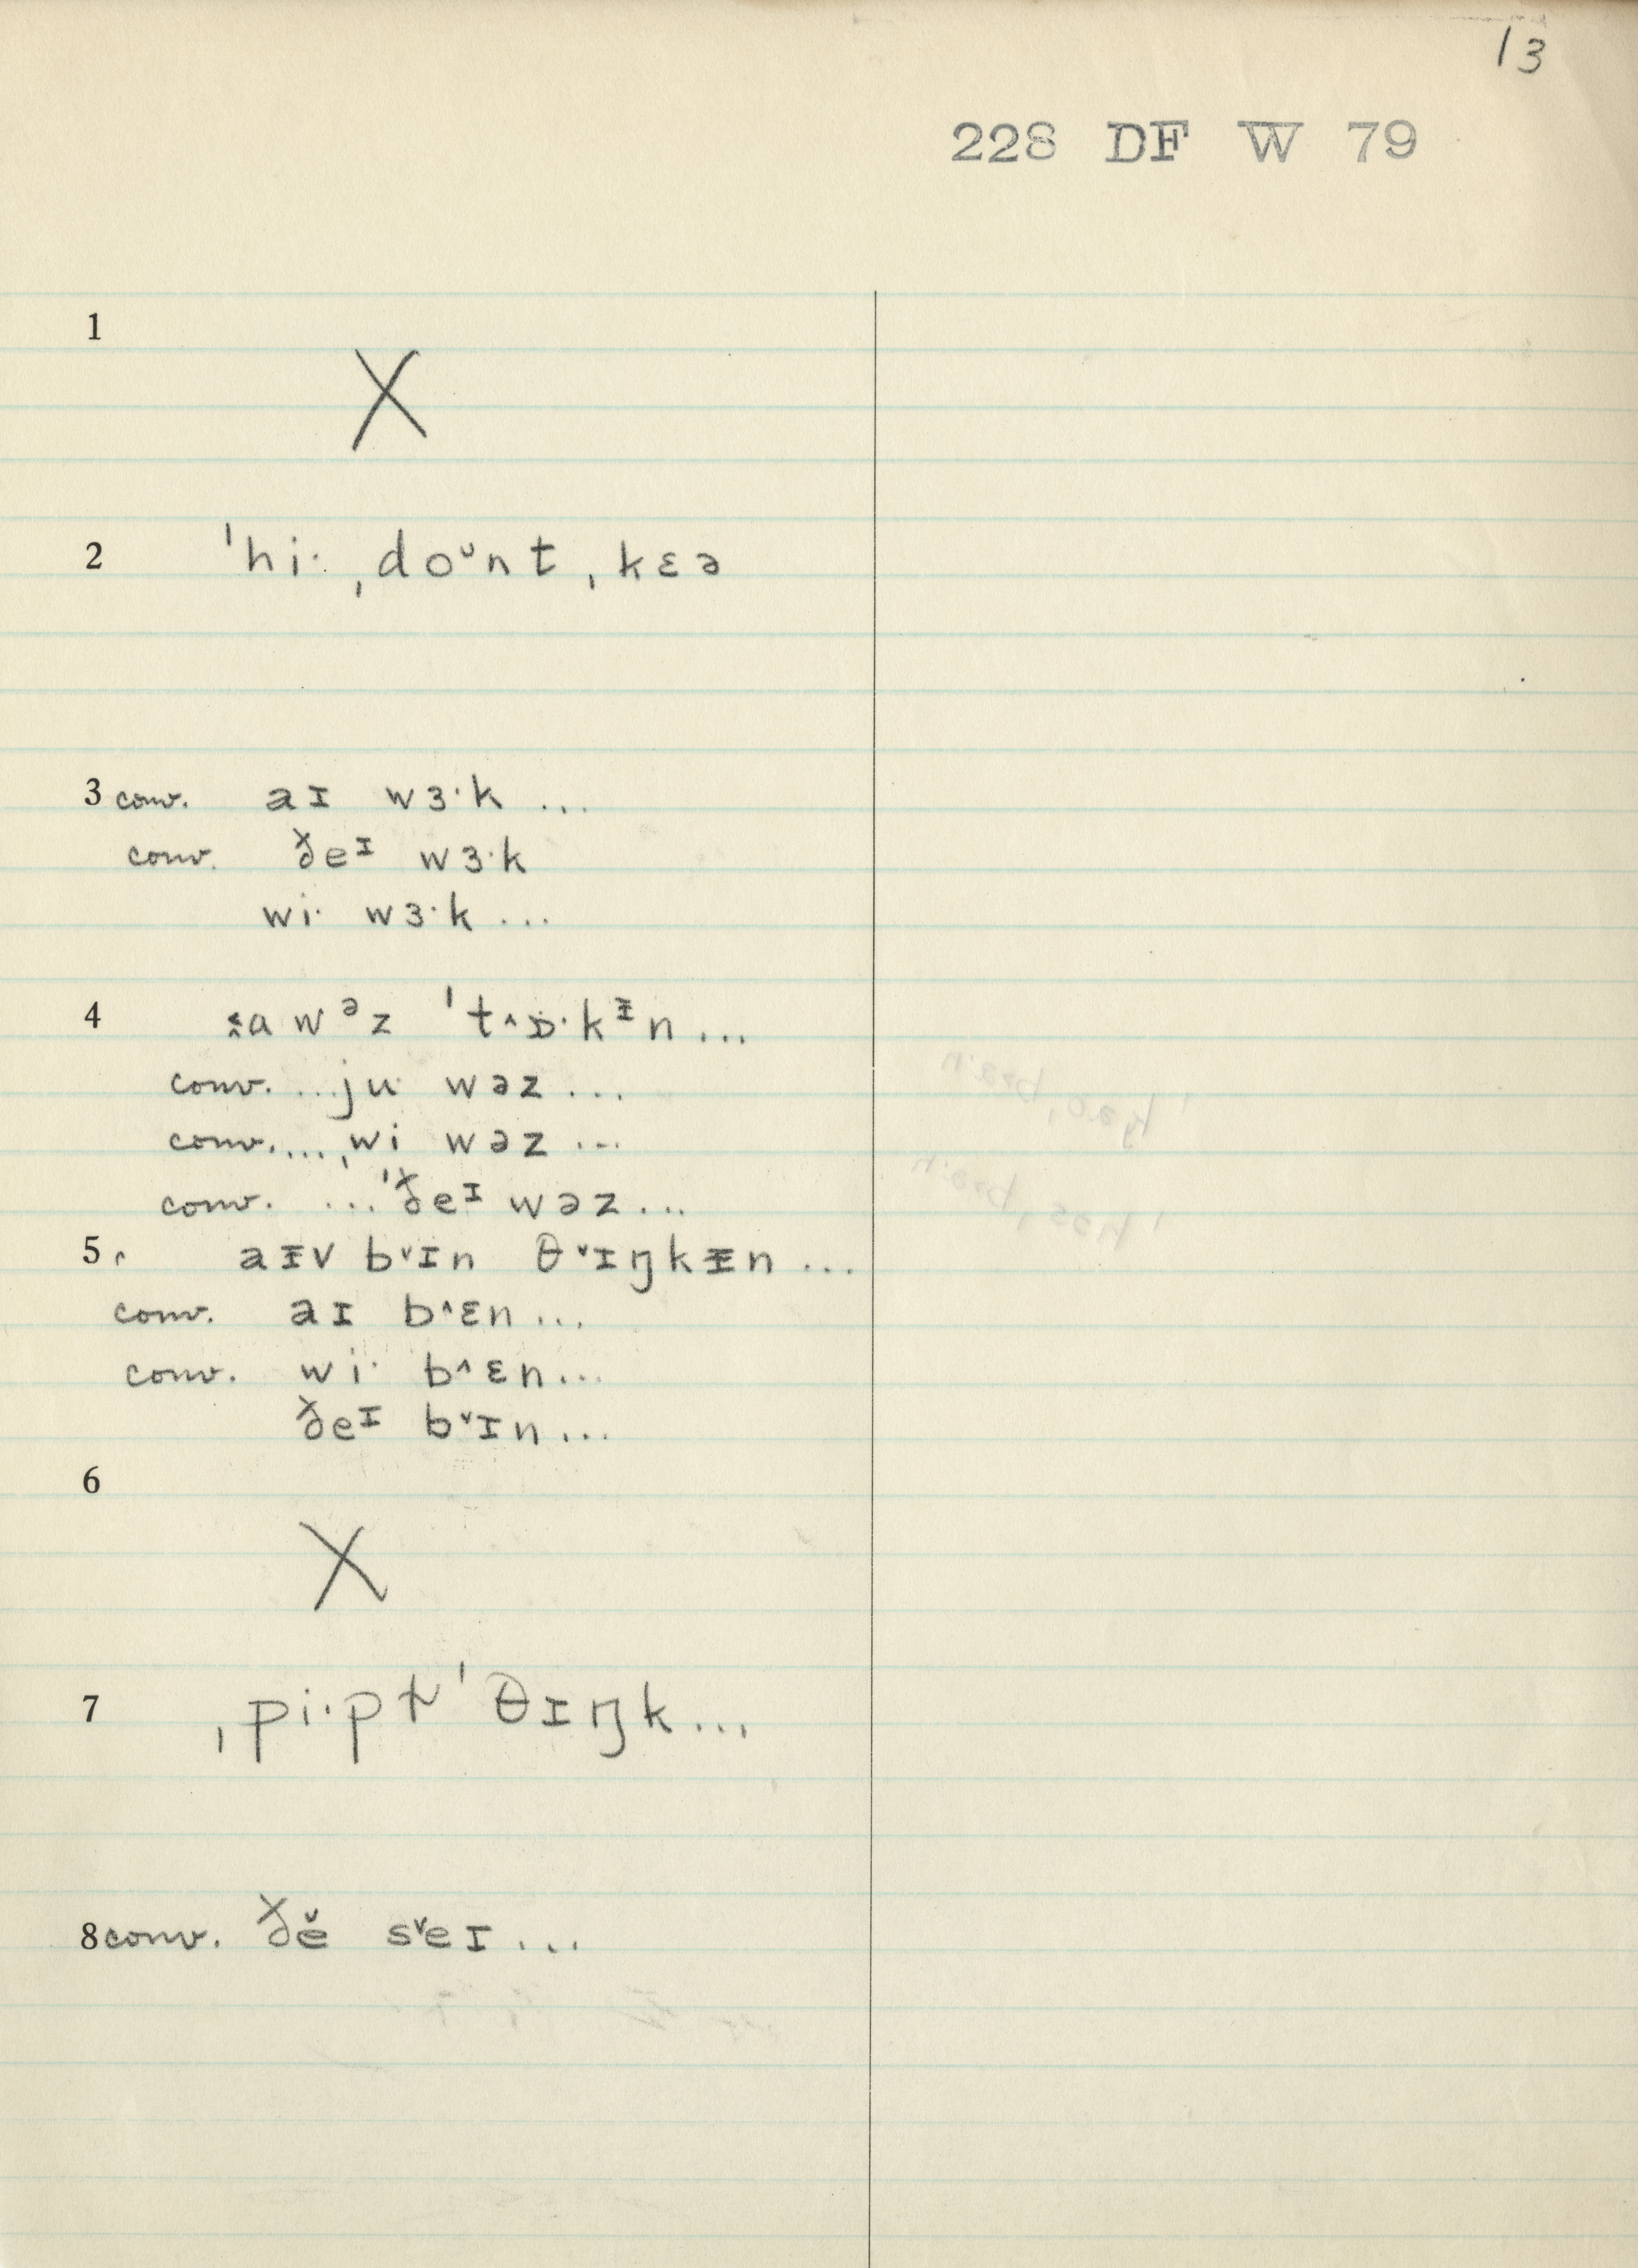 13
228 DF W 79
1
X
2 ˈhi· ˌdoᶷnt ˌkɛə
3 conv. aɪ wɜ·k ...
conv. ðeᶦ wɜ·k
wi· wɜ·k ...
4 a wᵊz ˈt˄ɒ·kᵻn ...
conv. ...ju· wəz ...
conv. ...ˌwi wəz ...
conv. ...ˈðeᶦ wəz...
5 ʳ aᵻv b˅ɪn θ˅ɪŋkᵻn ...
conv. aɪ b˄ɛn ...
conv. wi· b˄ɛn...
ðeᶦ b˅ɪn...
6
X
7 ˌpi·pɫ ˈθɪŋk...
8 conv. ðĕ s˅eɪ...